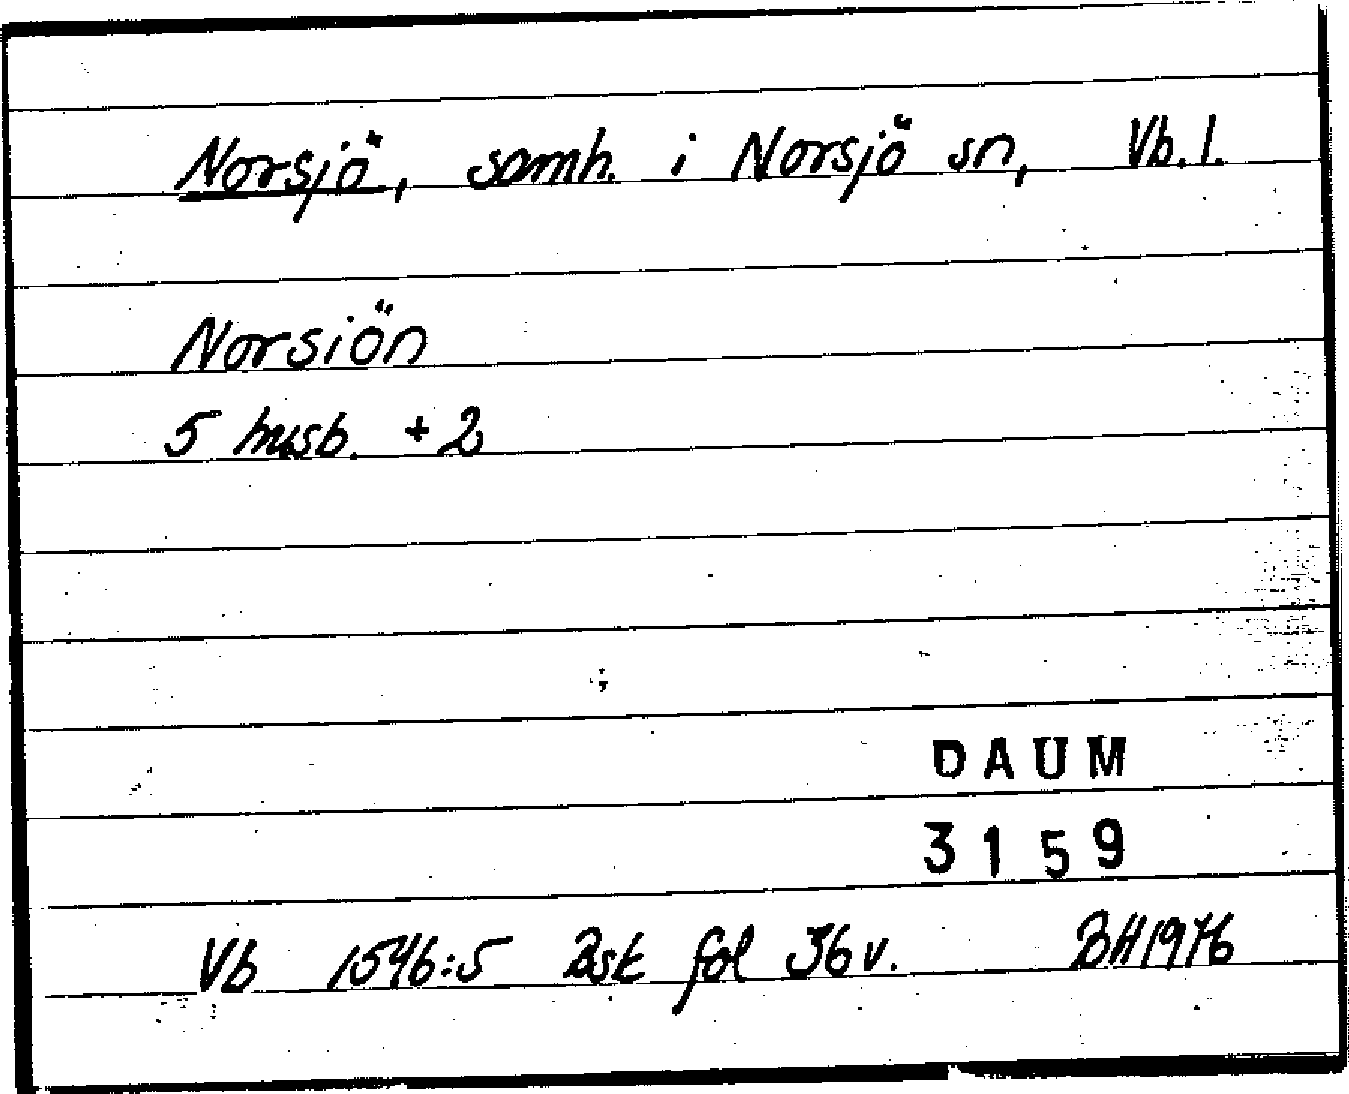 Norsjö, samh. i Norsjö sn, Vb. l.
Norsiön
5 husb. + 2
DAUM
3159
Vb 1546:5 Bsk fol 36 v. BH 1976